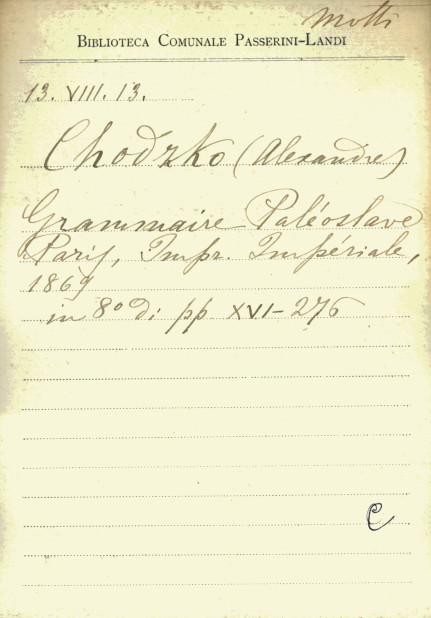 Motti
BIBLIOTECA COMUNALE PASSERINI-LANDI
13. VIII. 13.
Chodzko (Alexandre)
Grammaire Paléoslave
Paris, Impr. Impériale,
1869
in 8º di pp. XVI-276
C